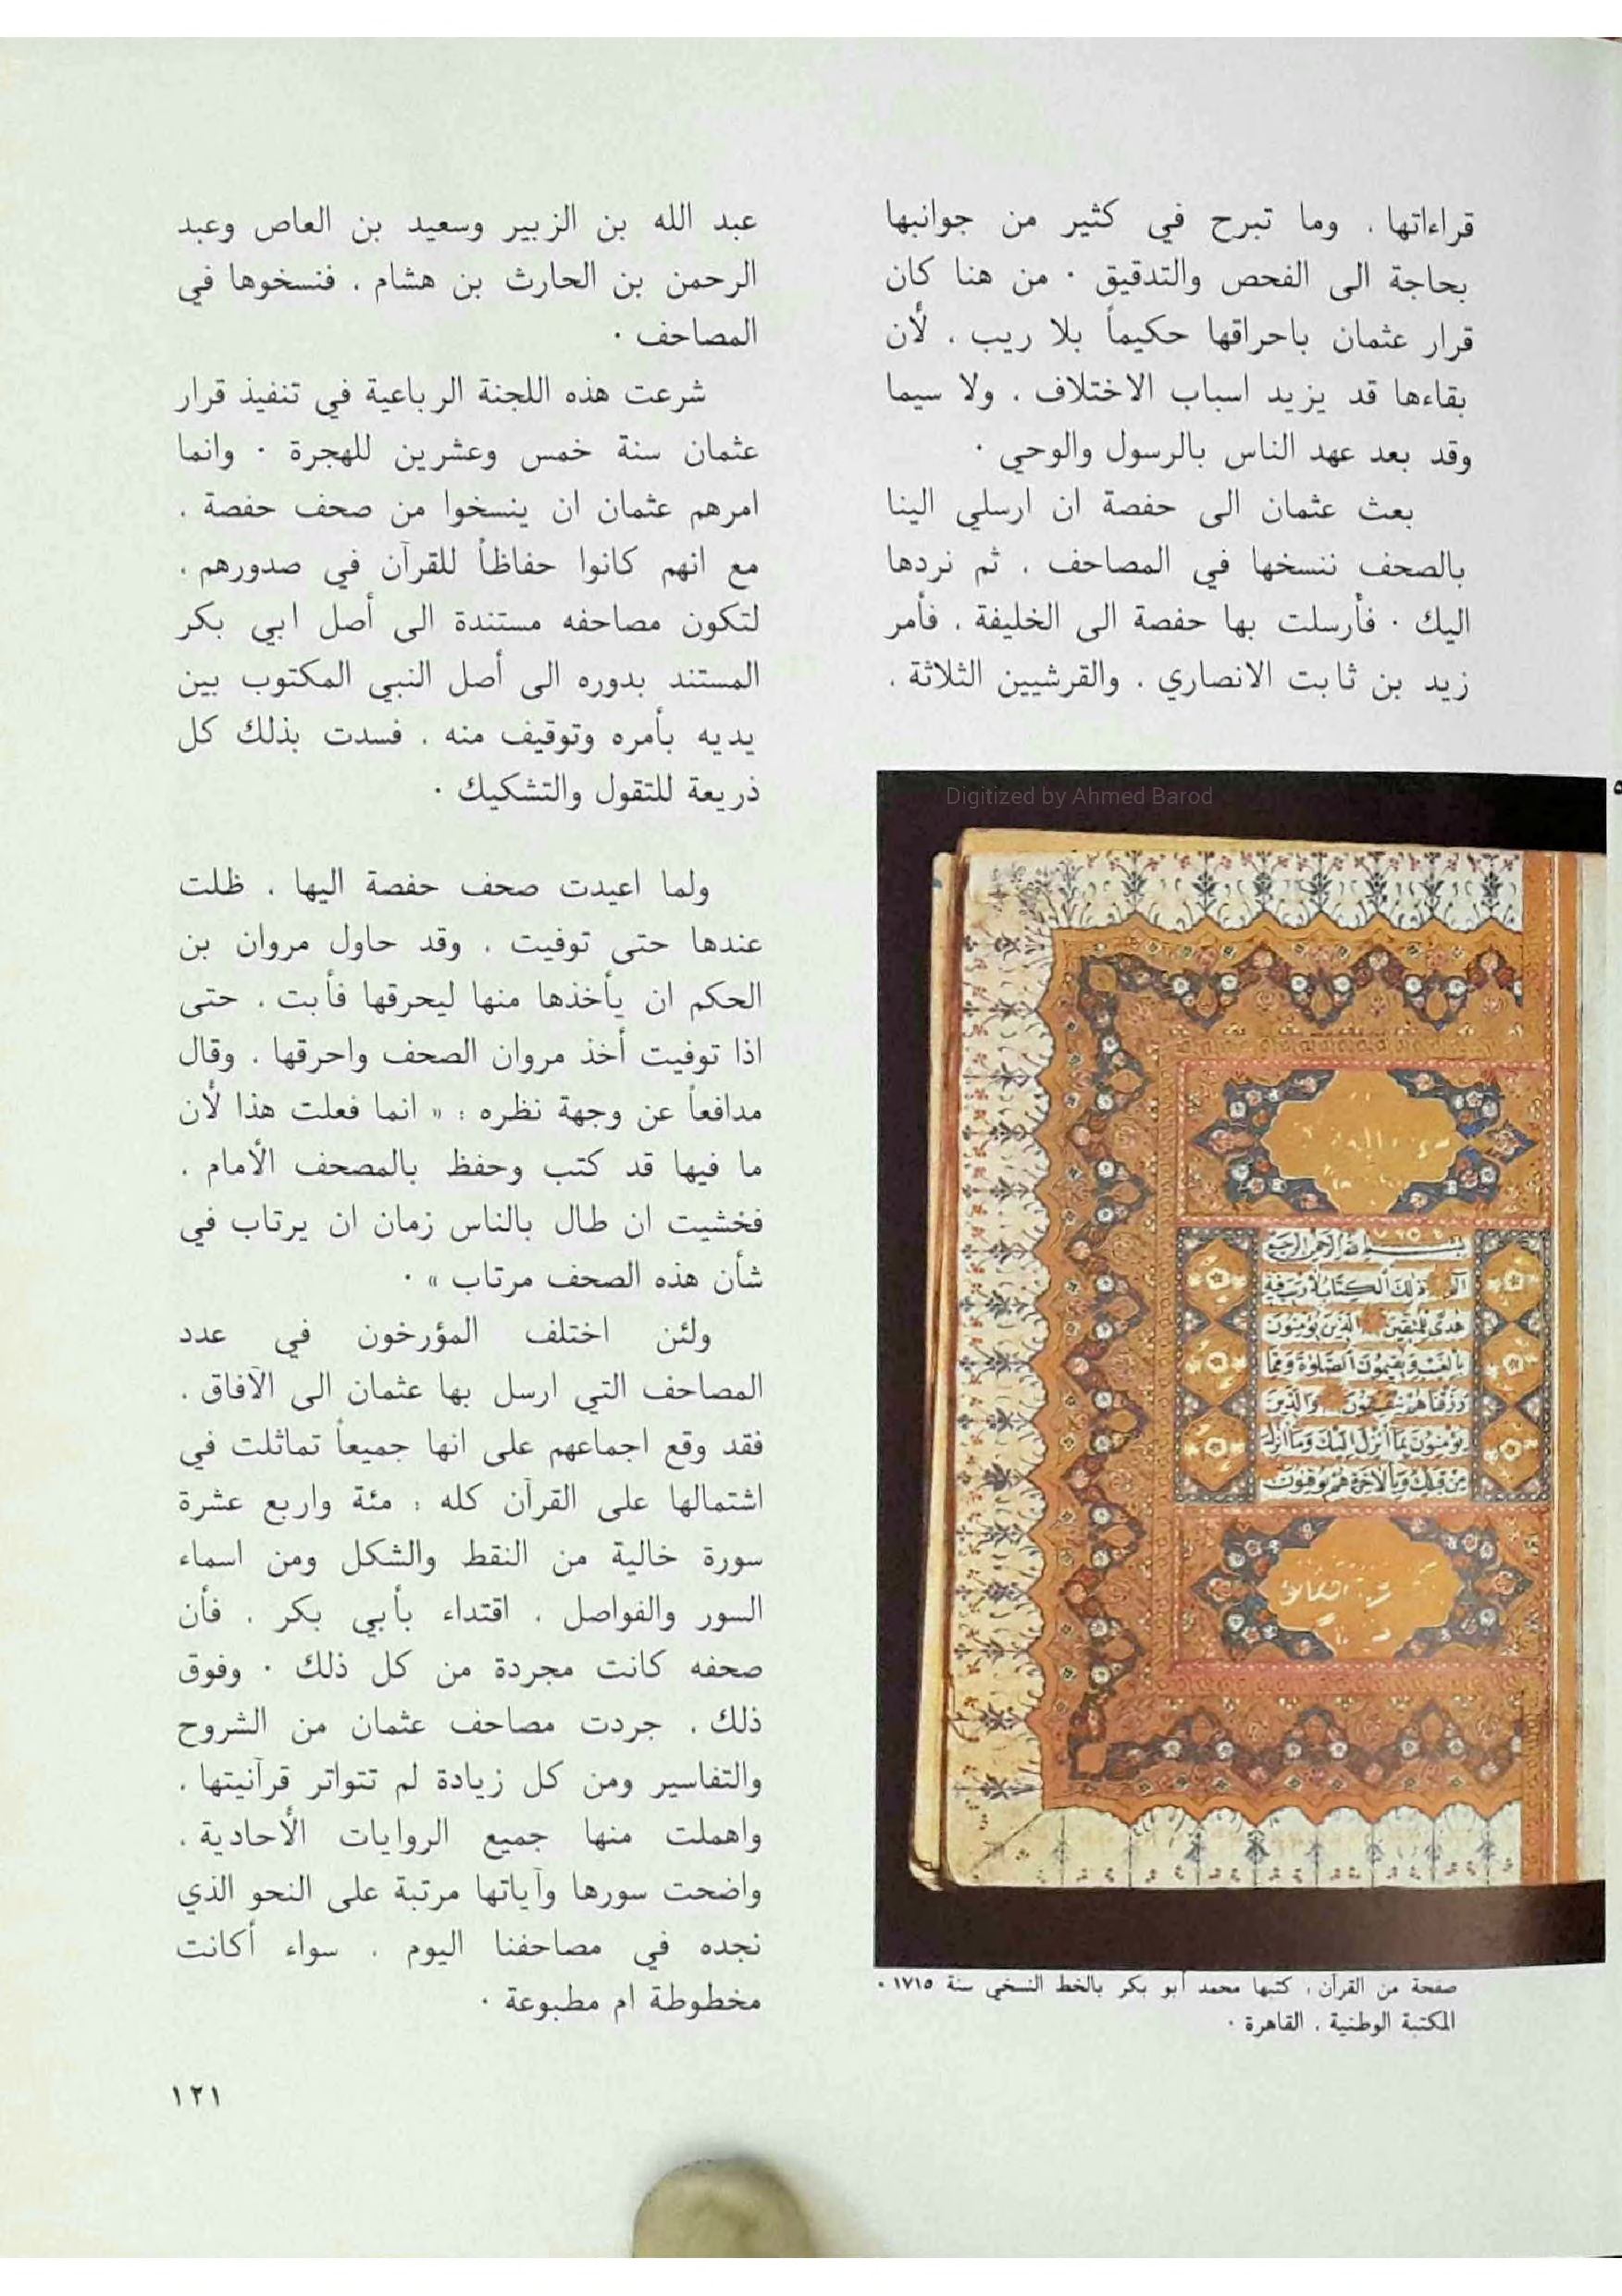 قراءاتها ، وما تبرح في كثير من جوانبها
بحاجة الى الفحص والتدقيق ٠ من هنا كان
قرار عثمان باحراقها حكيماً بلا ريب ، لأن
بقاءها قد يزيد اسباب الاختلاف ، ولا سيما
وقد بعد عهد الناس بالرسول والوحي ٠
بعث عثمان الى حفصة ان ارسلي الينا
بالصحف ننسخها في المصاحف ، ثم نردها
اليك ٠ فأرسلت بها حفصة الى الخليفة ، فأمر
زيد بن ثابت الانصاري ، والقرشيين الثلاثة ،
Digitized by Ahmed Barod
بسم الله الرحمن الرحيم
الم ذلك الكتاب لا ريب فيه
هدى للمتقين الذين يؤمنون
بالغيب ويقيمون الصلوة ومما
رزقناهم ينفقون والذين
يؤمنون بما أنزل إليك وما أنزل
من قبلك وبالآخرة هم يوقنون
صفحة من القرآن ، كتبها محمد أبو بكر بالخط النسخي سنة ١٧١٥ ٠
المكتبة الوطنية ، القاهرة ٠
عبد الله بن الزبير وسعيد بن العاص وعبد
الرحمن بن الحارث بن هشام ، فنسخوها في
المصاحف ٠
شرعت هذه اللجنة الرباعية في تنفيذ قرار
عثمان سنة خمس وعشرين للهجرة ٠ وانما
امرهم عثمان ان ينسخوا من صحف حفصة ،
مع انهم كانوا حفاظاً للقرآن في صدورهم ،
لتكون مصاحفه مستندة الى أصل ابي بكر
المستند بدوره الى أصل النبي المكتوب بين
يديه بأمره وتوقيف منه ، فسدت بذلك كل
ذريعة للتقول والتشكيك ٠
ولما اعيدت صحف حفصة اليها ، ظلت
عندها حتى توفيت ، وقد حاول مروان بن
الحكم ان يأخذها منها ليحرقها فأبت ، حتى
اذا توفيت أخذ مروان الصحف واحرقها ، وقال
مدافعاً عن وجهة نظره : « انما فعلت هذا لأن
ما فيها قد كتب وحفظ بالمصحف الأمام ،
فخشيت ان طال بالناس زمان ان يرتاب في
شأن هذه الصحف مرتاب » ٠
ولئن اختلف المؤرخون في عدد
المصاحف التي ارسل بها عثمان الى الآفاق ،
فقد وقع اجماعهم على انها جميعاً تماثلت في
اشتمالها على القرآن كله : مئة واربع عشرة
سورة خالية من النقط والشكل ومن اسماء
السور والفواصل ، اقتداء بأبي بكر ، فأن
صحفه كانت مجردة من كل ذلك ٠ وفوق
ذلك ، جردت مصاحف عثمان من الشروح
والتفاسير ومن كل زيادة لم تتواتر قرآنيتها ،
واهملت منها جميع الروايات الأحادية ،
واضحت سورها وآياتها مرتبة على النحو الذي
نجده في مصاحفنا اليوم ، سواء أكانت
مخطوطة ام مطبوعة ٠
١٢١